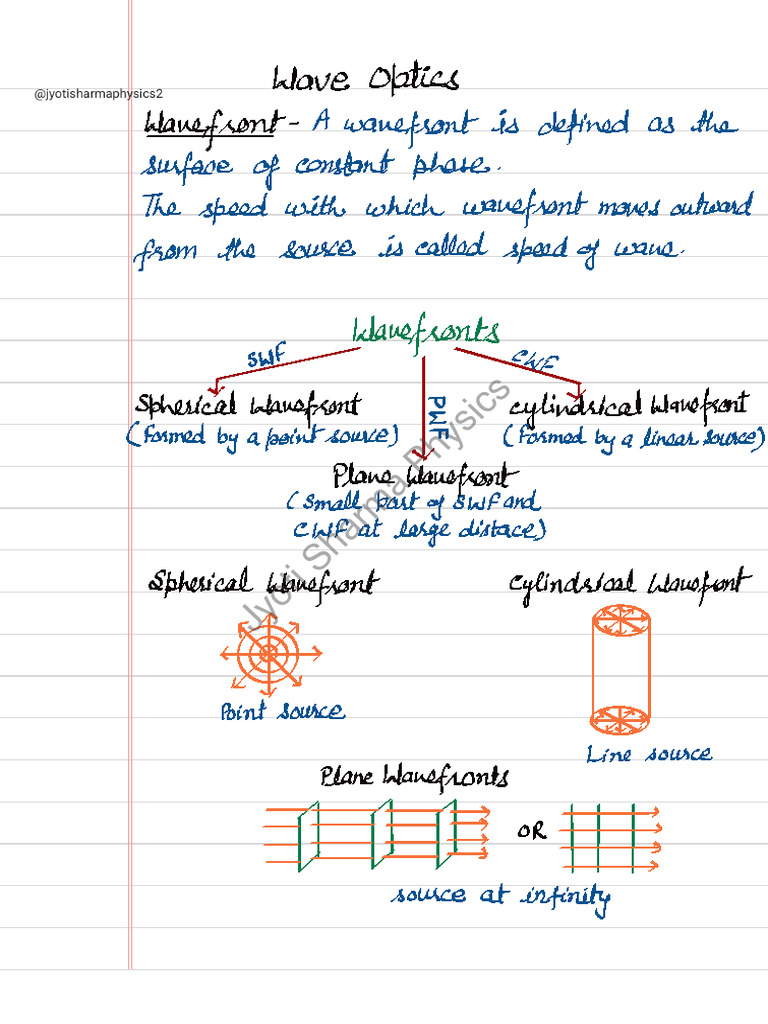 Wave Optics
@jyotisharmaphysics2
Wavefront - A wavefront is defined as the
surface of constant phase.
The speed with which wavefront moves outward
from the source is called speed of wave.
Wavefronts
SWF
CWF
PWF
Spherical Wavefront
(formed by a point source)
Cylindrical Wavefront
(formed by a linear source)
Plane Wavefront
(small part of SWF and
CWF at large distace)
Jyoti Sharma Physics
Spherical Wavefront
Cylindrical Wavefront
Point source
Line source
Plane Wavefronts
OR
source at infinity